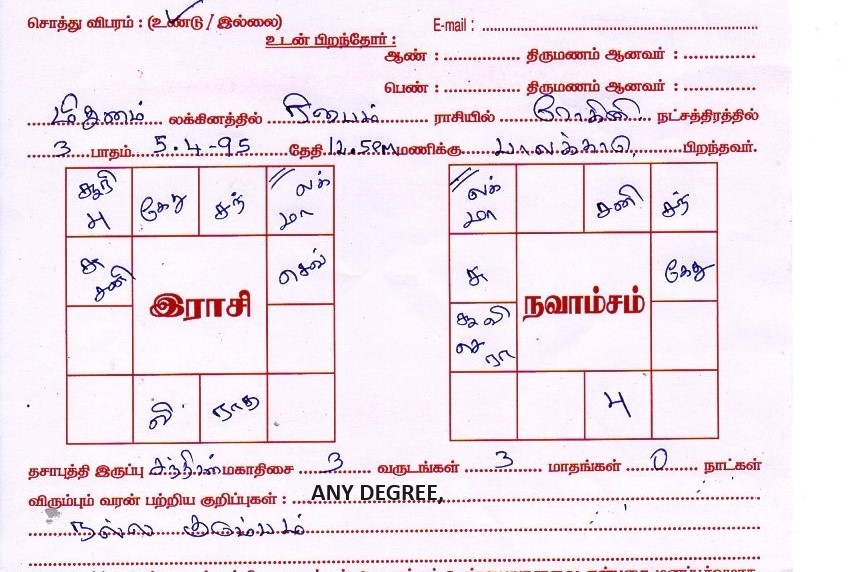 சொத்து விபரம் : (உண்டு / இல்லை) E-mail :
உடன் பிறந்தோர் :
ஆண் : திருமணம் ஆனவர் :
பெண் : திருமணம் ஆனவர் :
மிதுனம் லக்கினத்தில் ரிஷபம் ராசியில் ரோகினி நட்சத்திரத்தில்
3 பாதம் 5.4-95 தேதி 12.5PM மணிக்கு பாலக்காடு பிறந்தவர்.
சூரி கேது சந் லக் லக் சனி சந்
பு மா மா
சு செவ் சு கேது
சனி
இராசி நவாம்சம்
சூ வி
செ ரா
வி ராகு பு
தசாபுத்தி இருப்பு சந்திரன் மகாதிசை 3 வருடங்கள் 3 மாதங்கள் 0 நாட்கள்
விரும்பும் வரன் பற்றிய குறிப்புகள் : ANY DEGREE,
நல்ல குடும்பம்